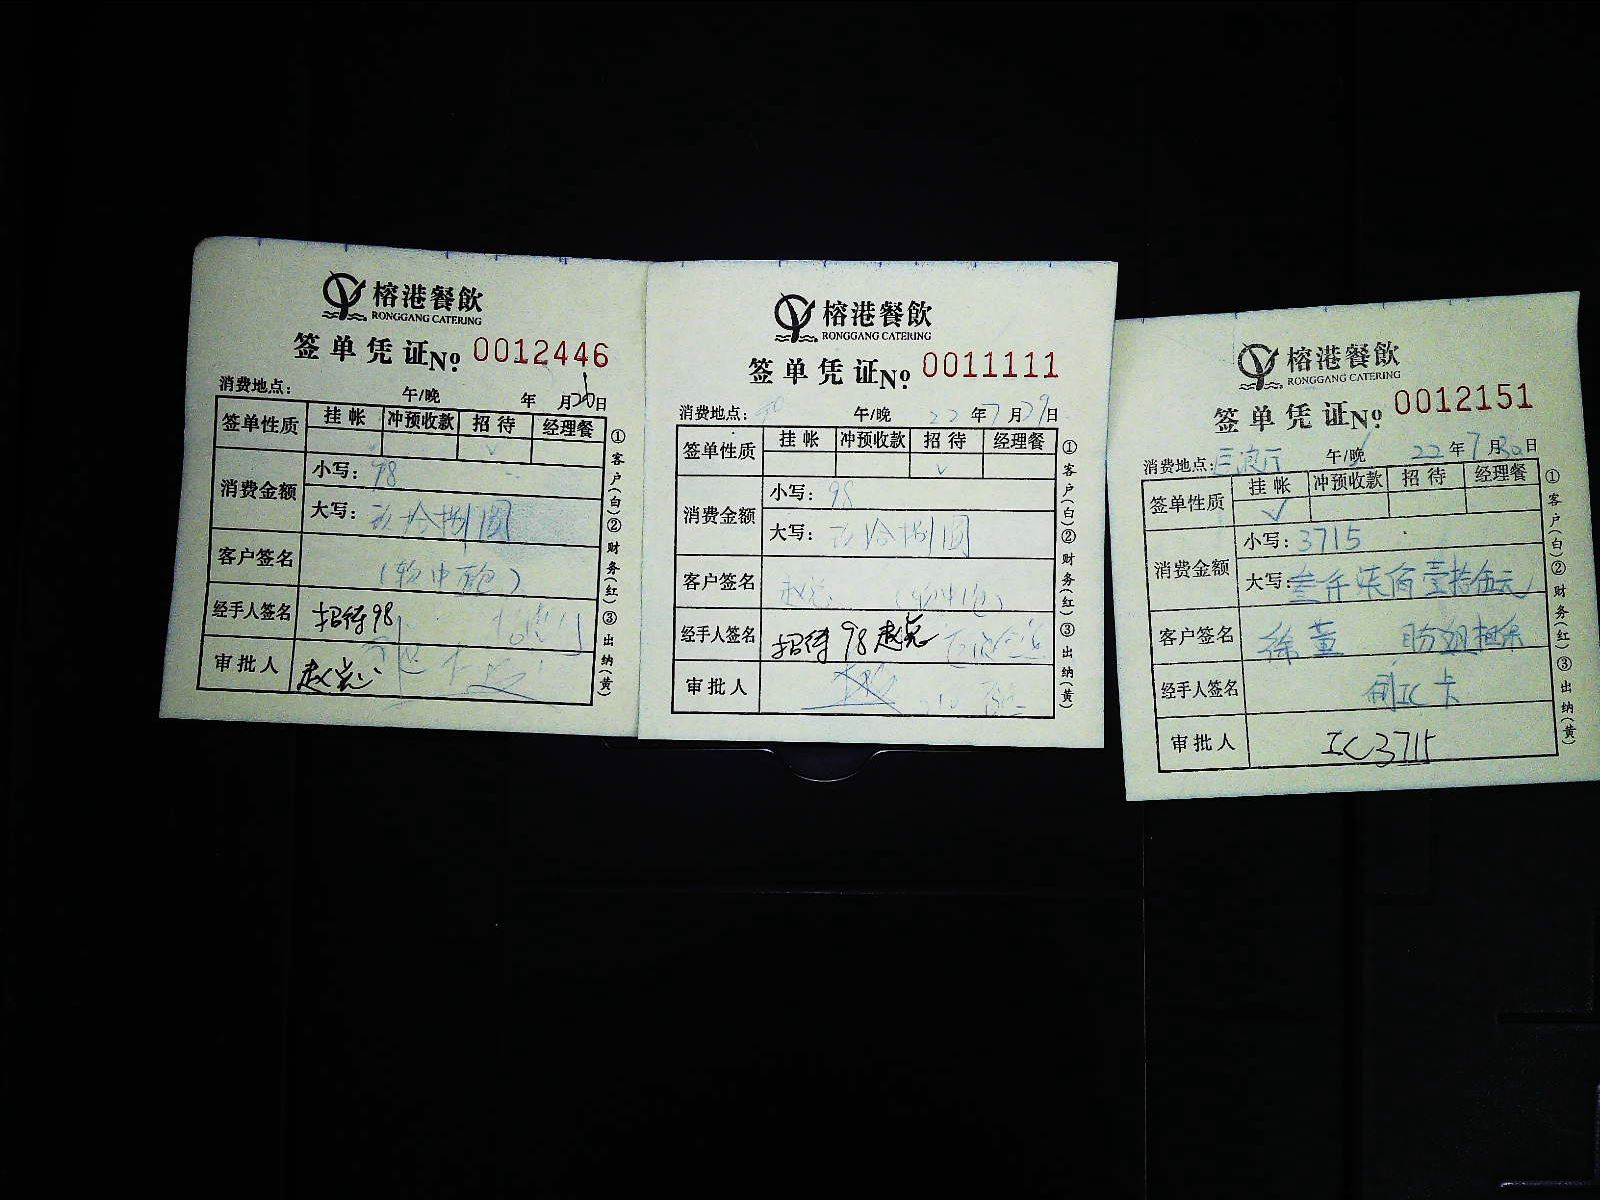 榕港餐飲
RONGGANG CATERING
签单凭证№ 0012446
消费地点： 午/晚 年 月26日
签单性质 挂帐 冲预收款 招待 经理餐
√
消费金额 小写：98
大写：玖拾捌圆
客户签名
经手人签名 招待98
审批人
①客户(白)②财务(红)③出纳(黄)
榕港餐飲
RONGGANG CATERING
签单凭证№ 0011111
消费地点： 午/晚 22年7月29日
签单性质 挂帐 冲预收款 招待 经理餐
√
消费金额 小写：98
大写：玖拾捌圆
客户签名
经手人签名 招待98
审批人
①客户(白)②财务(红)③出纳(黄)
榕港餐飲
RONGGANG CATERING
签单凭证№ 0012151
消费地点： 午/晚 22年7月30日
签单性质 挂帐 冲预收款 招待 经理餐
√
消费金额 小写：3715
大写：叁仟柒佰壹拾伍元
客户签名 徐董
经手人签名 刷IC卡
审批人 IC3715
①客户(白)②财务(红)③出纳(黄)